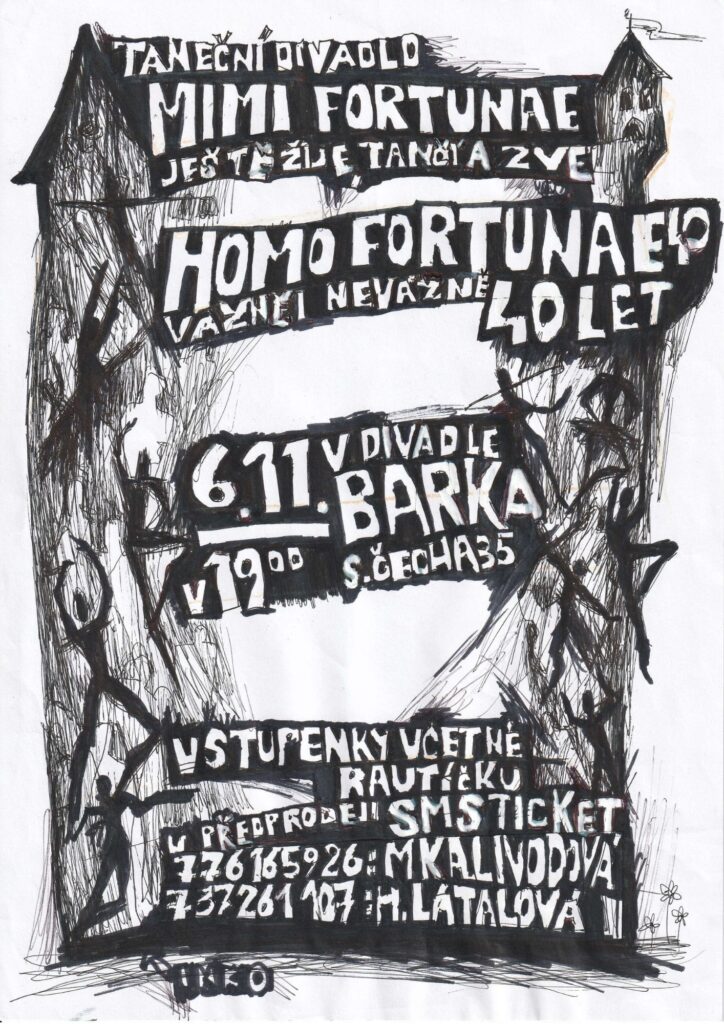 TANEČNÍ DIVADLO
MIMI FORTUNAE
JEŠTĚ ŽIJE, TANČÍ A ZVE
HOMO FORTUNAE 40
VÁŽNĚ I NEVÁŽNĚ
40 LET
6.11. V DIVADLE
BARKA
V 19 00 S. ČECHA 35
VSTUPENKY VČETNĚ
RAUTÍČKU
V PŘEDPRODEJI SMSTICKET
776165926: M KALIVODOVÁ
737261107: H. LÁTALOVÁ